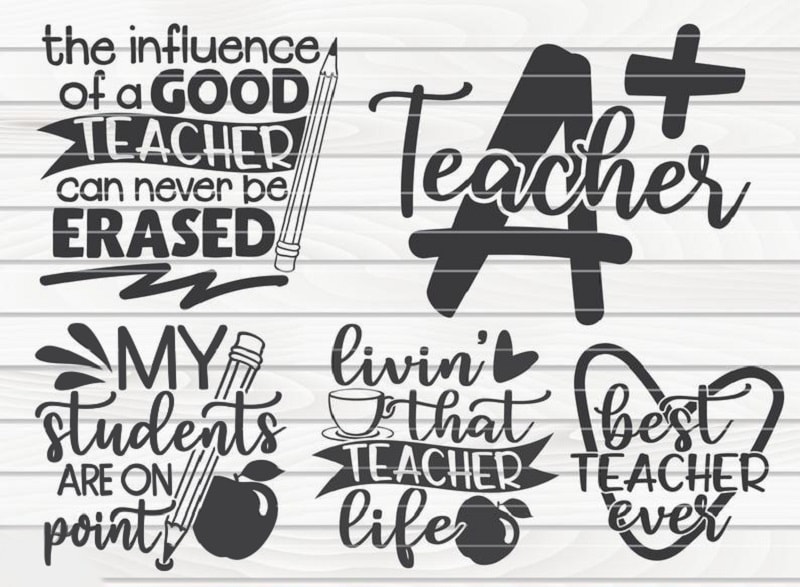 the influence
of a GOOD
TEACHER
can never be
ERASED
A+
Teacher
MY
students
ARE ON
point
livin'
that
TEACHER
life
best
TEACHER
ever